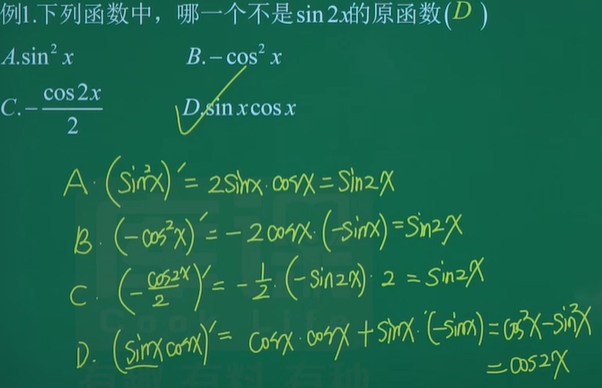 例1.下列函数中，哪一个不是sin 2x的原函数(D)
A.sin² x    B.−cos² x
C.−cos 2x/2    D.sin x cos x
A. (sin²x)′ = 2sinx·cosx = sin2x
B. (−cos²x)′ = −2cosx·(−sinx) = sin2x
C. (−cos2x/2)′ = −1/2·(−sin2x)·2 = sin2x
D. (sinx cosx)′ = cosx·cosx + sinx·(−sinx) = cos²x − sin²x
= cos2x